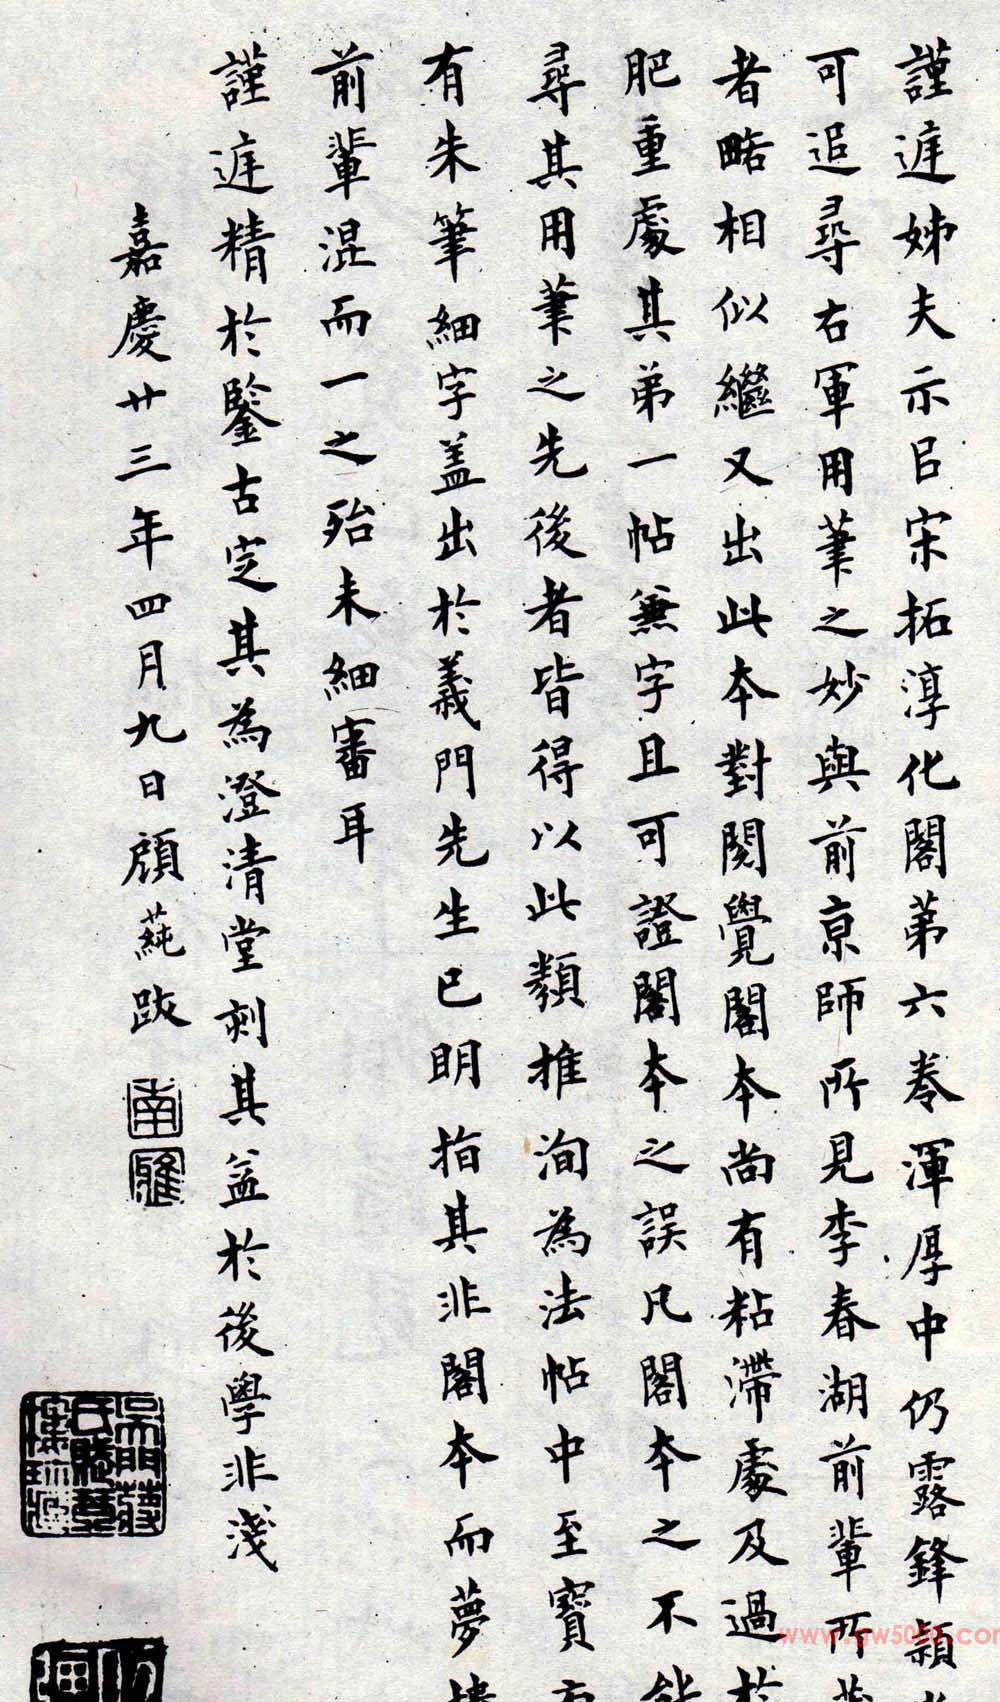 謹庭姊夫示㠯宋拓淳化閣苐六卷渾厚中仍露鋒頴
可追尋右軍用筆之妙與前京師所見李春湖前輩所
者略相似繼又出此本對閱覺閣本尚有粘滯處及過於
肥重處其弟一帖無字且可證閣本之誤凡閣本之不能
尋其用筆之先後者皆得以此類推洵為法帖中至寶
有朱筆細字盖出於義門先生已明指其非閣本而夢樓
前輩混而一之殆未細審耳
謹庭精於鑒古定其為澄清堂刻其益於後學非淺
嘉慶廿三年四月九日顧蒓跋
南雅
www.gw5000.com